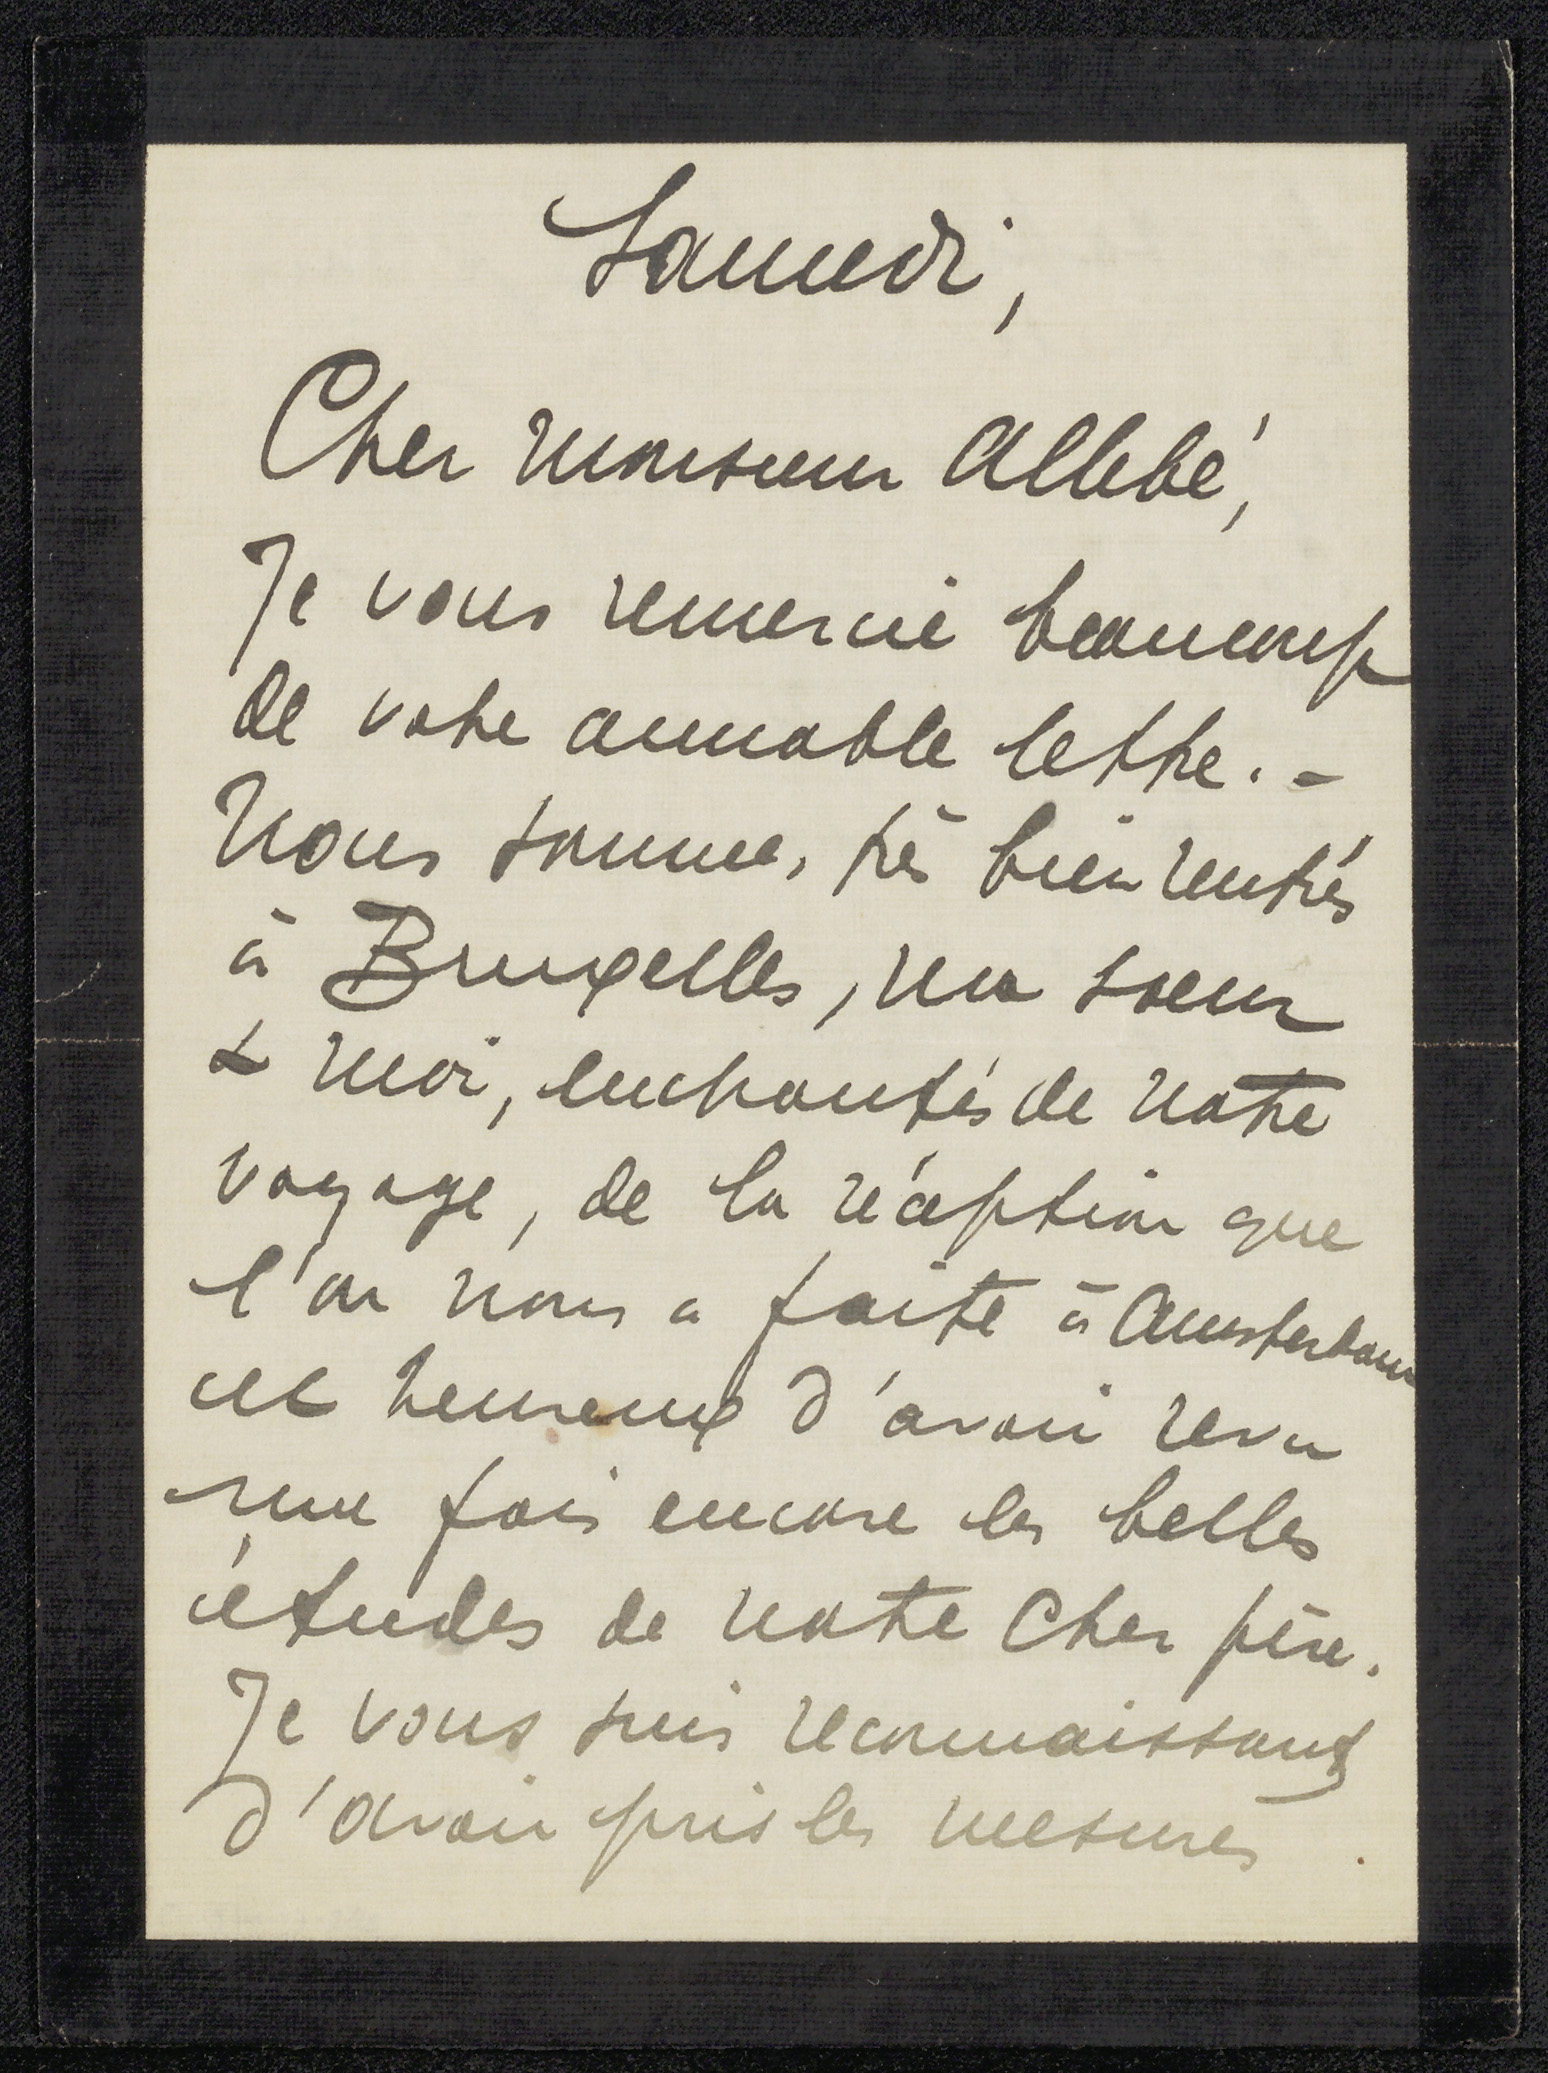 Samedi,
Cher Monsieur Allebé,
Je vous remercie beaucoup
de votre aimable lettre. -
Nous sommes très bien rentrés
à Bruxelles, ma soeur
& moi, enchantés de notre
voyage, de la réception que
l'on nous a faite à Amsterdam
et heureux d'avoir revu
une fois encore les belles
études de notre Cher père.
Je vous suis reconnaissant
d'avoir pris les mesures